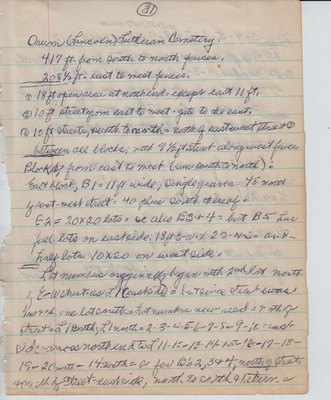 (31)
Orum (Lincoln) Lutheran Cemetery.
417 ft from south to north fences.
208½ ft east to west fences.
18 ft open area at north end except east 11 ft.
10 ft street from east to west - gate to the east.
10 ft streets, south to north = north of east west street
between all blocks, with 9½ ft street along west fence
Blocks from east to west (run south to north):
East block, B1 = 11 ft wide, single graves 45 north
of east-west street 40 plus south thereof.
B2 = 20x20 lots = so also B3 & 4 = but B-5 has
full lots on east side. 18 ft E-W x 22 N-S = and
half lots 10x20 on west side.
Lot numbers originally began with 2nd lot north
one lot south = Lot numbers now read = north of
street = L1 north, L1 north = 2-3-4-5-6-7-8-9-10 east
side = across north end to L11-12-13-14-15-16-17-18-
19-20 = for B's 2, 3 & 4, north of street
south of street east side, north to south & return